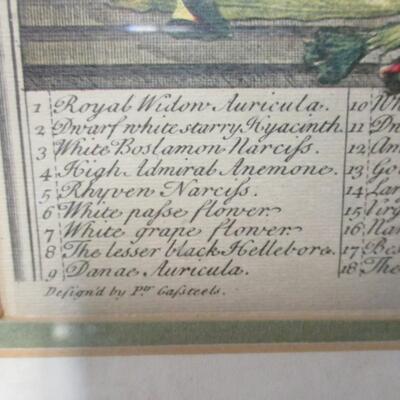 1 Royal Widow Auricula.
2 Dwarf white starry Hyacinth.
3 White Boslamon Narciss.
4 High Admiral Anemone.
5 Rhyven Narciss.
6 White passe flower
7 White grape flower
8 The lesser black Hellebore.
9 Danae Auricula.
10 Wh
11 Dw
12 Am
13 Go
14 Lar
15 Virg
16 Nar
17 Bes
18 The
Design'd by Pr Casteels.